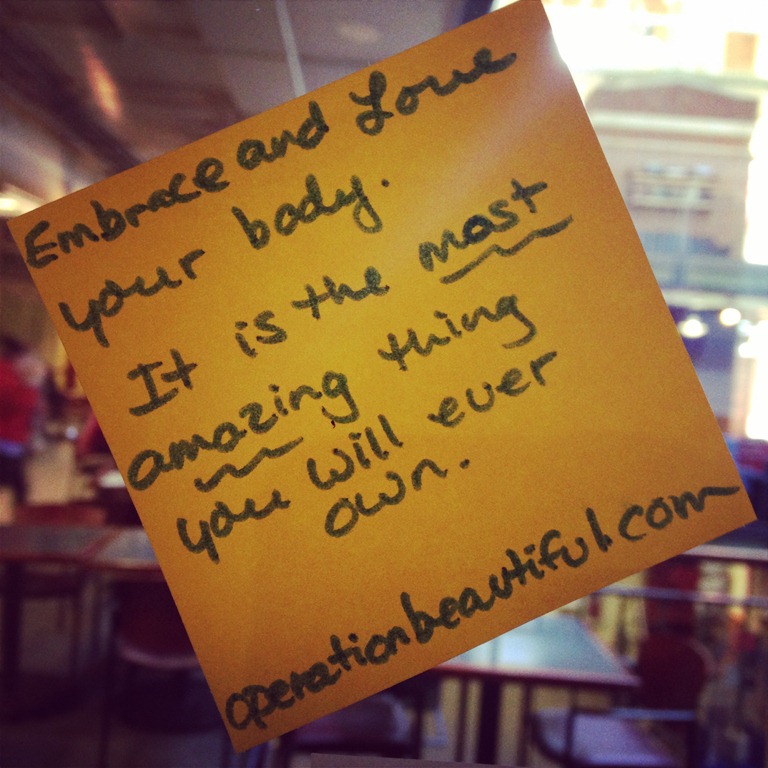 Embrace and Love
your body.
It is the most
amazing thing
you will ever
own.
operationbeautiful.com